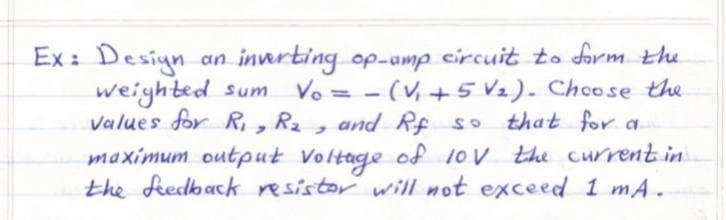 Ex: Design an inverting op-amp circuit to form the
weighted sum Vo = - (V₁ + 5 V₂). Choose the
values for R₁, R₂, and Rf so that for a
maximum output voltage of 10V the current in
the feedback resistor will not exceed 1 mA.